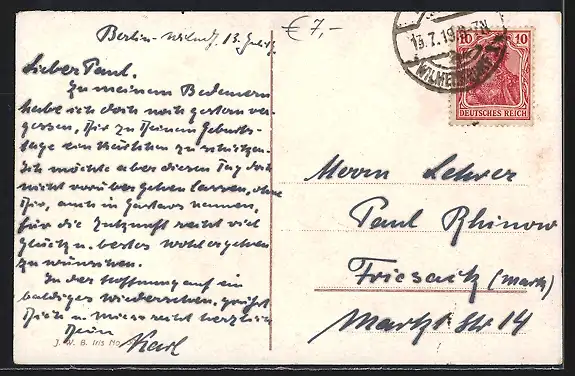 Berlin-Wilmd. 13. Juli 19.
Lieber Paul.
Zu meinem Bedauern
habe ich doch noch gestern ver-
gessen, Dir zu Deinem Geburts-
tage ein Kärtchen zu schicken.
Ich möchte aber diesen Tag doch
nicht vorübergehen lassen, ohne
Dir, auch in Gustavs Namen,
für die Zukunft recht viel
Glück u. bestes Wohlergehen
zu wünschen.
In der Hoffnung auf ein
baldiges Wiedersehen, grüßt
Dich u. Mieze recht herzlich
Dein
Karl
J. W. B. Iris No.
€ 7,-
13.7.19
WILMERSDORF
10
DEUTSCHES REICH
Herrn Lehrer
Paul Rhinow
Friesack (Mark)
Markt Str 14